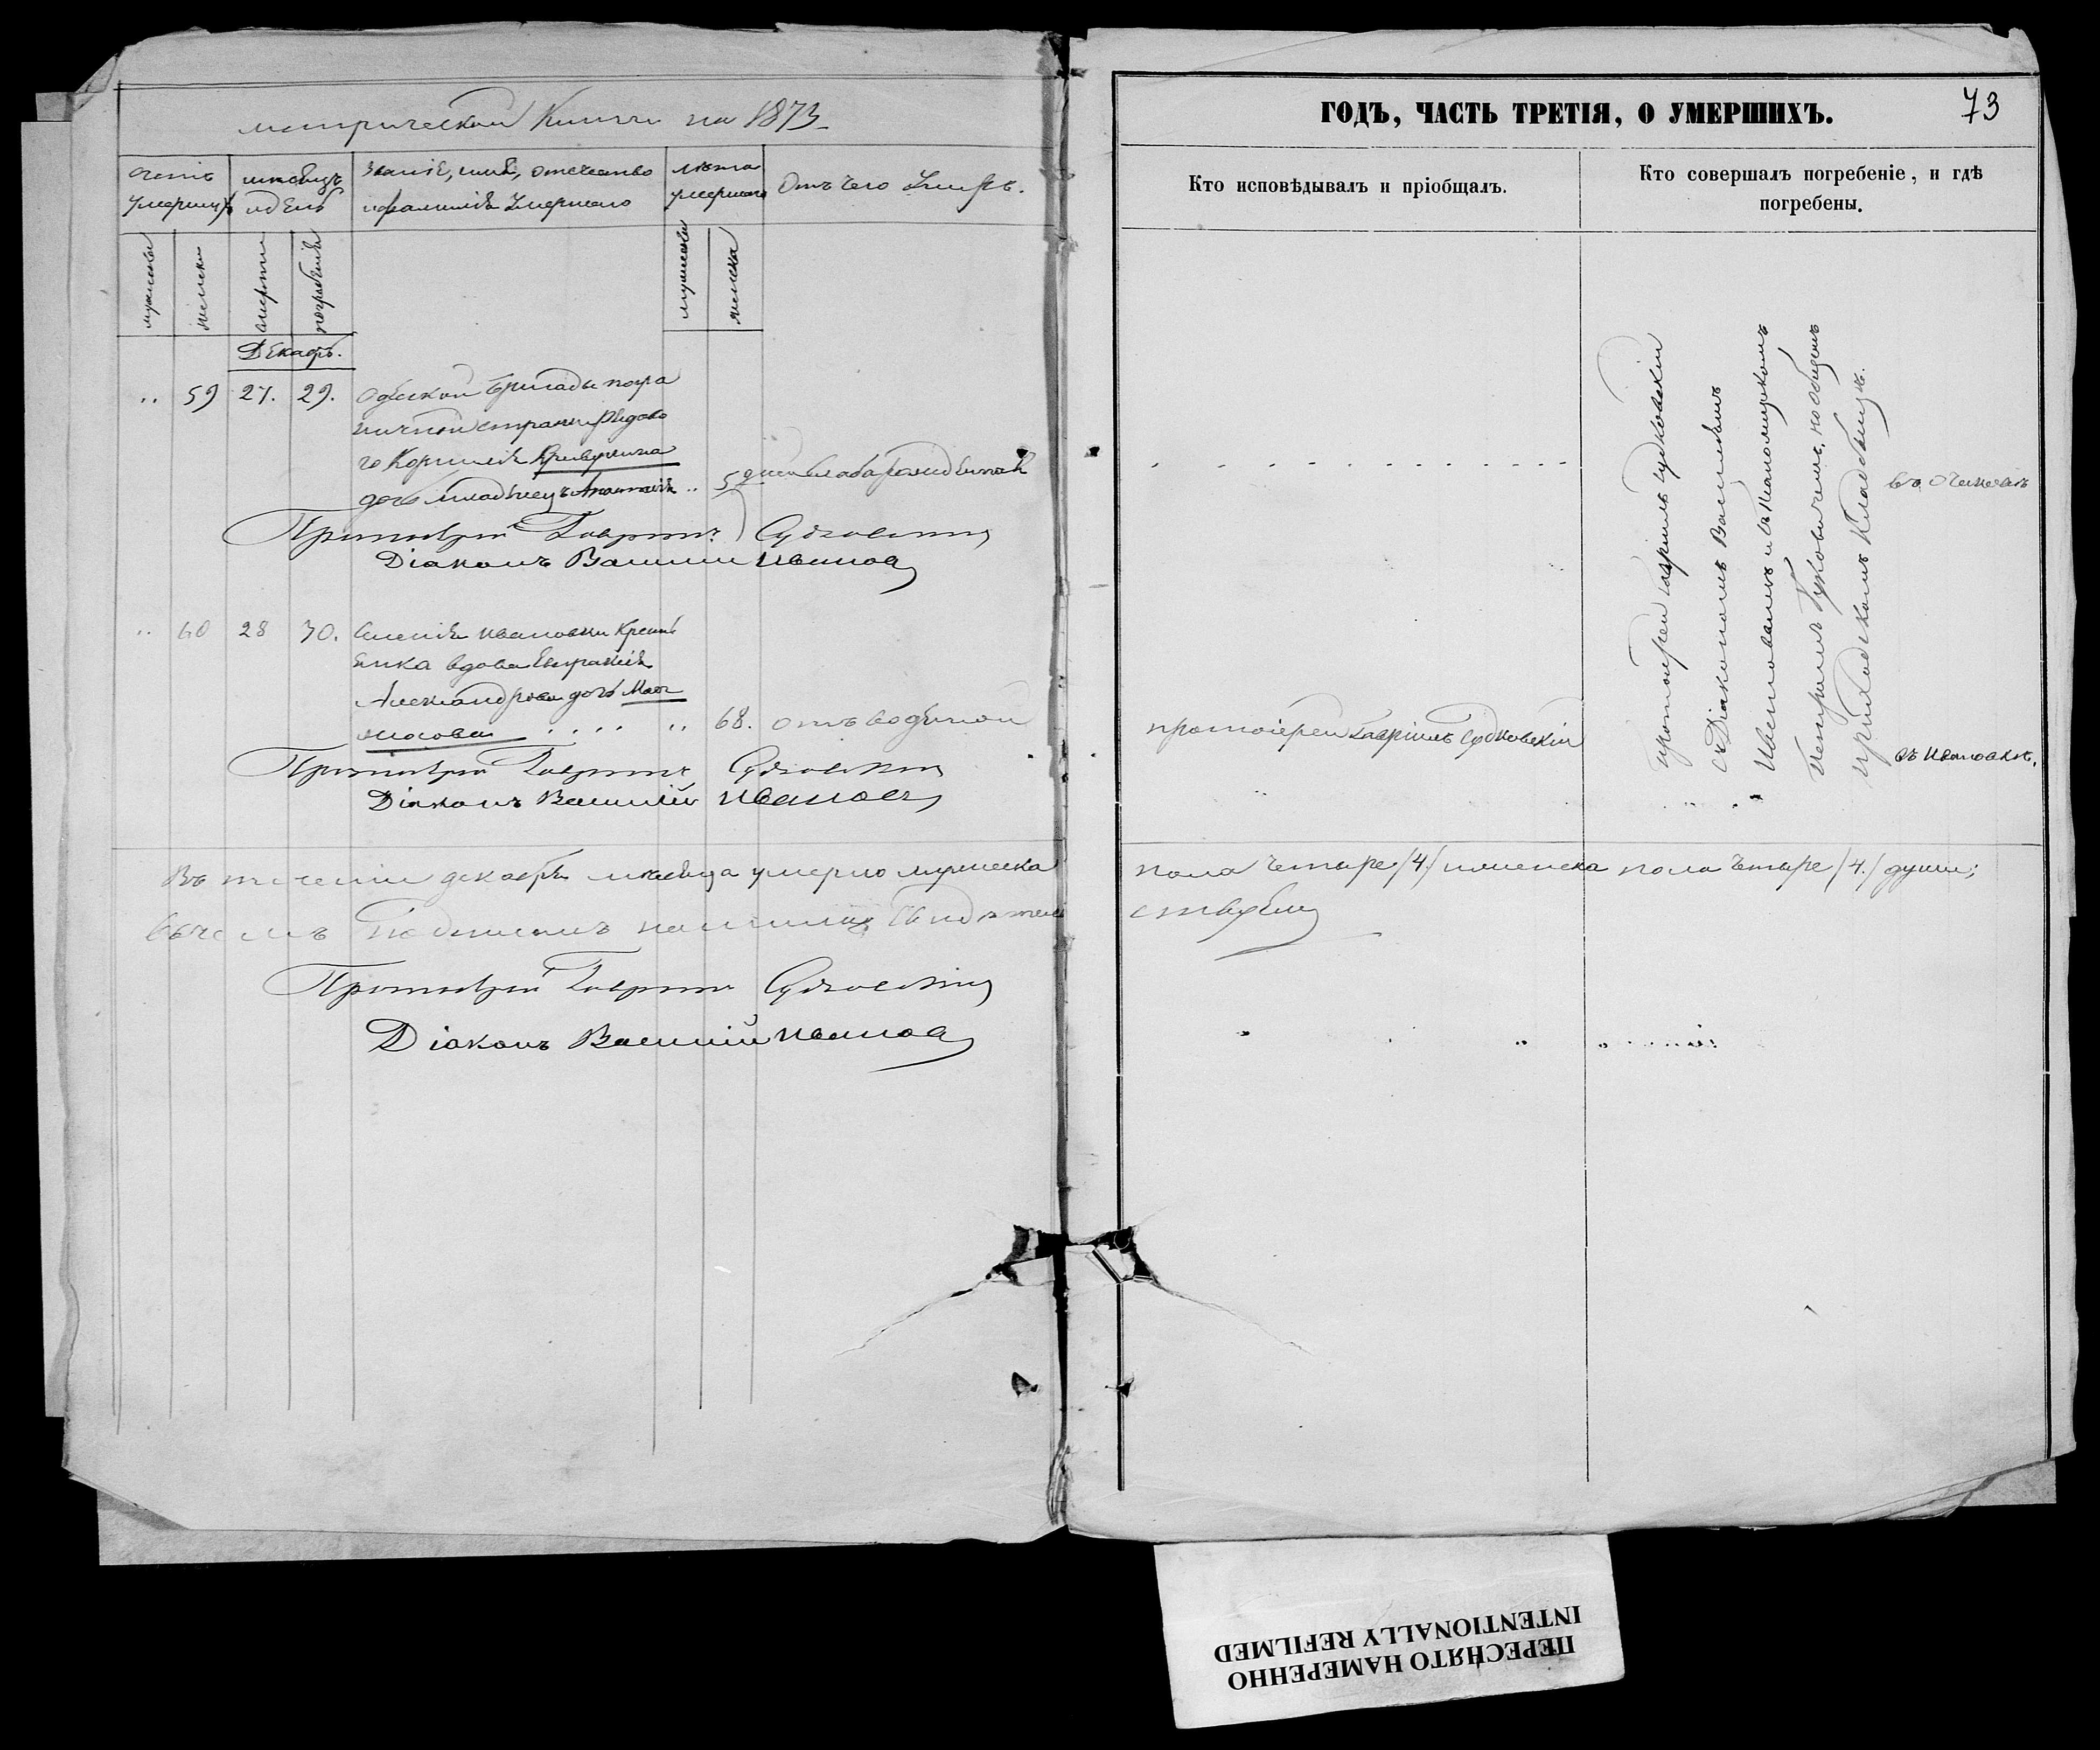 метрической книги на 1873
ГОДЪ, ЧАСТЬ ТРЕТІЯ, О УМЕРШИХЪ.
73
счетъ умершихъ
мѣсяцъ и день
званіе, имя, отечество
и фамилія умершаго
лѣта
умершаго
Отъ чего умеръ.
Кто исповѣдывалъ и пріобщалъ.
Кто совершалъ погребеніе, и гдѣ
погребены.
мужеска
женска
смерти
погребенія
мужеска
женска
Декабрь.
59 27. 29. Одеской бригады погра
ничной стражи рядово
го Корнилія
дочь младенец 5 дней слаба рожденная
Протоіерей Гавріилъ Судковскій
Діаконъ Василій Ивановъ
60 28 30. селенія Ивановки
вдова
Александрова дочь
68. отъ водяной
Протоіерей Гавріилъ Судковскій
Діаконъ Василій Ивановъ
протоіерей Гавріилъ Судковскій
протоіерей Гавріилъ Судковскій
съ Діакономъ Василіемъ
Ивановымъ и съ Пономаремъ
на общемъ
приходскомъ кладбищѣ.
въ Очаковѣ
въ Ивановкѣ.
Въ теченіи декабря мѣсяца умерло мужеска
пола четыре /4/ и женска пола четыре /4./ души;
въ чемъ подписомъ нашимъ свидѣтель
ствуемъ
Протоіерей Гавріилъ Судковскій
Діаконъ Василій Ивановъ
ПЕРЕСНЯТО НАМЕРЕННО
INTENTIONALLY REFILMED